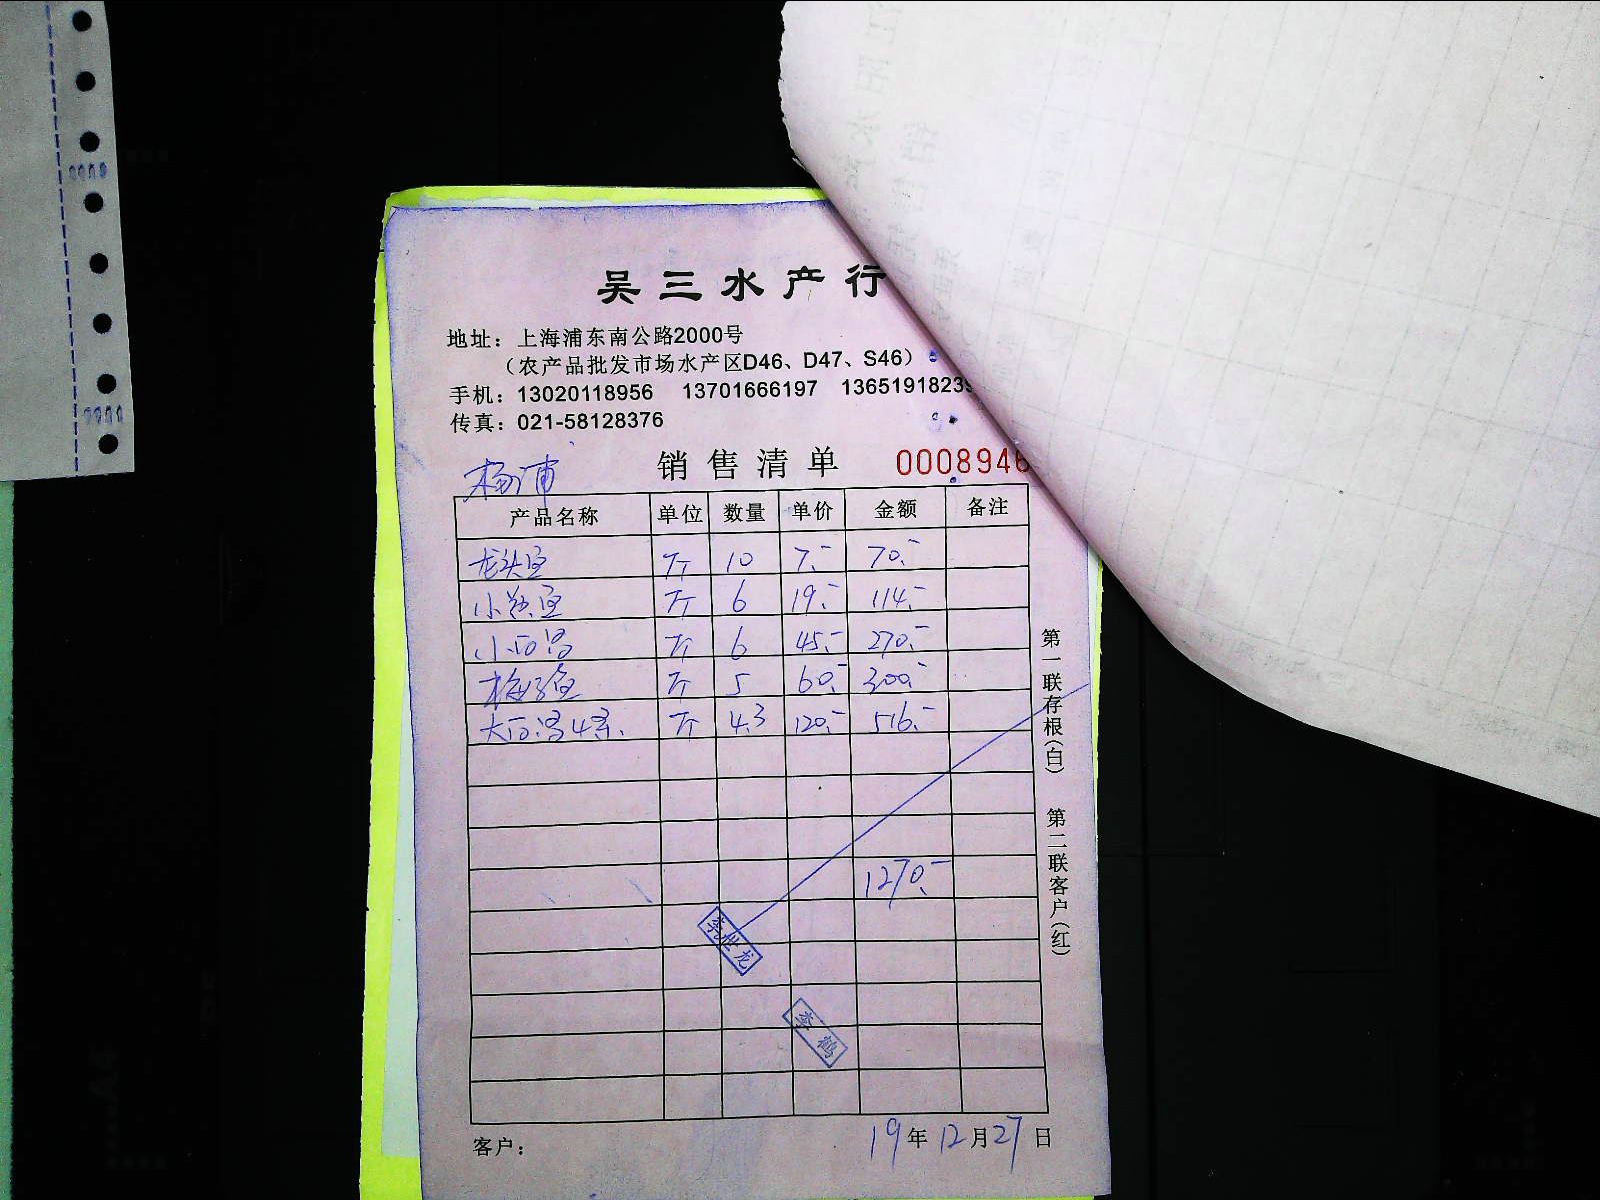 吴三水产行
地址：上海浦东南公路2000号
（农产品批发市场水产区D46、D47、S46）
手机：13020118956 13701666197 1365191823
传真：021-58128376
杨浦
销售清单 0008946
产品名称 单位 数量 单价 金额 备注
龙头鱼 斤 10 7.- 70.-
小黄鱼 斤 6 19.- 114.-
小白鲳 斤 6 45.- 270.-
梅子鱼 斤 5 60.- 300.-
大白鲳4条 斤 4.3 120.- 516.-
1270.-
李世龙
李鹤
第一联存根（白） 第二联客户（红）
客户： 19年12月27日